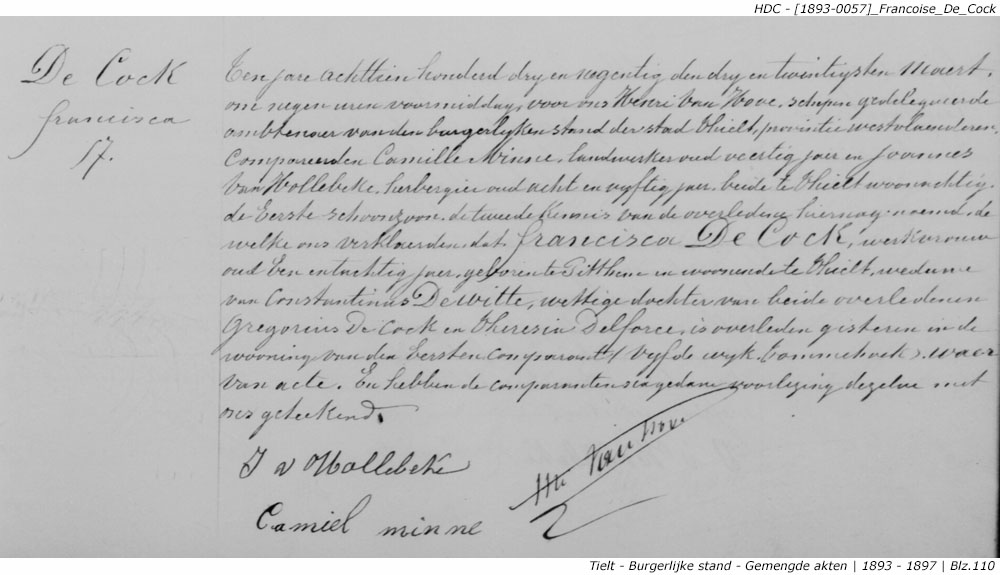 HDC - [1893-0057]_Francoise_De_Cock
De Cock
francisca
57.
Een jare achttien honderd dry en negentig den dry en twintigsten Maert,
om negen uren voormiddag, voor ons Henri Van Hove, schepen gedelegueerde
ambtenaer van den burgerlyken stand der stad Thielt, provintie westvlaenderen,
Compareerden Camille Minne, landwerker oud veertig jaer en Joannes
Van Hollebeke, herbergier oud acht en vyftig jaer, beide te Thielt woonachtig,
de Eerste schoonzoon, de tweede kennis van de overledene hiernaer noemd, de
welke ons verklaerden dat francisca De Cock, werkvrouw
oud Een en tachtig jaer, geboren te Pitthem en woonende te Thielt, weduwe
van Constantinus De witte, wettige dochter van beide overledenen
Gregorius De Cock en Theresia Delforce, is overleden gisteren in de
wooning van den Eersten comparant (Vyfde wyk, Pommehoek), waer
van acte. En hebben de comparanten na gedane voorlezing dezelve met
ons geteekend.
J v Hollebeke
Van Hove
Camiel minne
Tielt - Burgerlijke stand - Gemengde akten | 1893 - 1897 | Blz.110